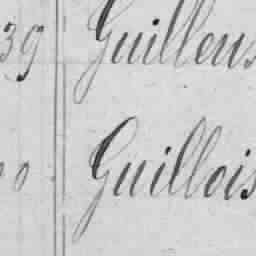 39 Guilleus
00 Guillois